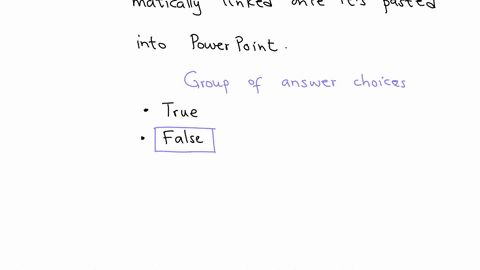 matically linked once it's pasted
into PowerPoint.
Group of answer choices
• True
• False